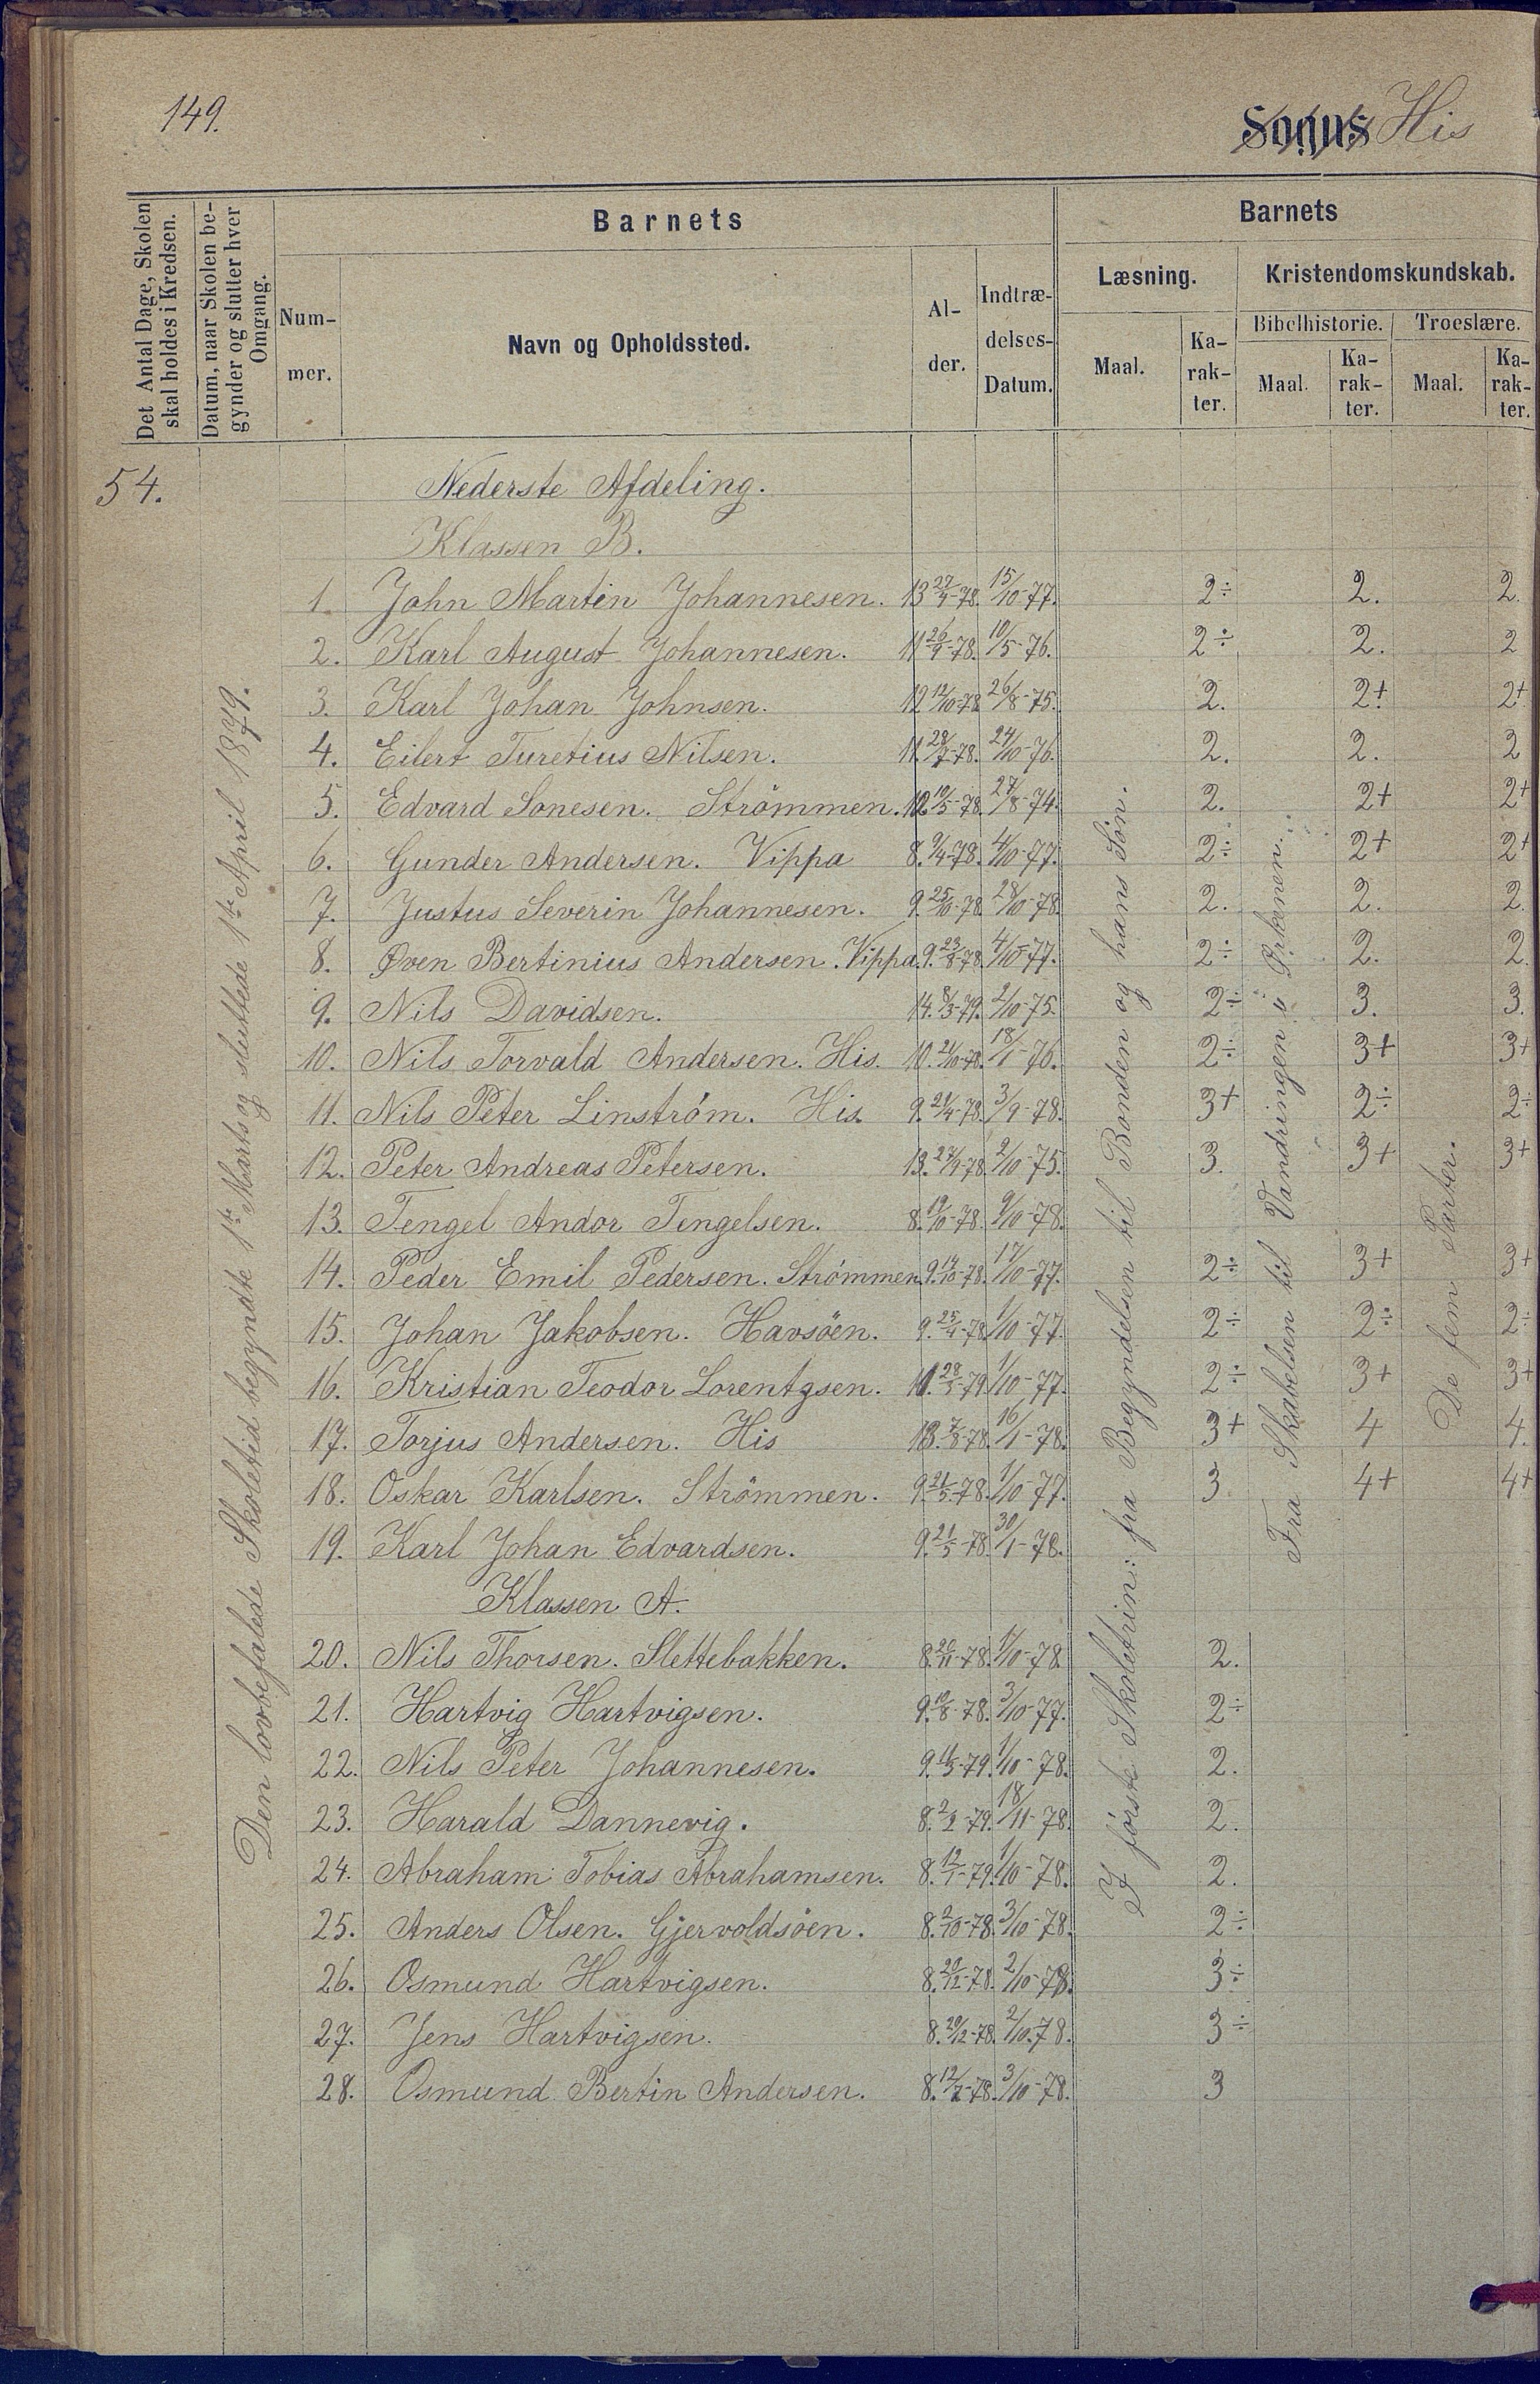 149.
Sogns His
Det Antal Dage, Skolen skal holdes i Kredsen.
Datum, naar Skolen begynder og slutter hver Omgang.
Barnets
Barnets
Nummer.
Navn og Opholdssted.
Alder.
Indtrædelses-Datum.
Læsning.
Kristendomskundskab.
Bibelhistorie.
Troeslære.
Maal.
Karakter.
Maal.
Karakter.
Maal.
Karakter.
54.
Den lovbefalede Skoletid begyndte 1te Marts og sluttede 1te April 1879.
I første Skoletrin: fra Begyndelsen til Bonden og hans Søn.
Fra Skabelsen til Vandringen i Ørkenen.
De fem Parter.
Nederste Afdeling.
Klassen B.
1. John Martin Johannesen. 13 27/9-78. 15/10-77. 2÷ 2. 2.
2. Karl August Johannesen. 11 26/9-78. 10/5-76. 2÷ 2. 2
3. Karl Johan Johnsen. 12 12/10-78 26/8-75. 2. 2+ 2+
4. Eilert Turetius Nilsen. 11. 28/7-78. 24/10-76. 2. 2. 2
5. Edvard Sonesen. Strömmen. 12. 10/5-78. 27/8-74. 2. 2+ 2+
6. Gunder Andersen. Vippa 8. 9/4-78. 4/10-77. 2÷ 2+ 2+
7. Justus Severin Johannesen. 9. 25/10-78. 28/10-78. 2. 2. 2.
8. Øven Bertinius Andersen. Vippa. 9. 23/8-78. 4/10-77. 2÷ 2. 2.
9. Nils Davidsen. 14. 8/3-79. 2/10-75. 2÷ 3. 3.
10. Nils Torvald Andersen. His. 10. 21/10-78. 18/1-76. 2÷ 3+ 3+
11. Nils Peter Linström. His. 9. 21/4-78. 3/9-78. 3+ 2÷ 2÷
12. Peter Andreas Petersen. 13. 27/9-78. 2/10-75. 3. 3+ 3+
13. Tengel Andor Tengelsen. 8. 19/10-78. 9/10-78.
14. Peder Emil Pedersen. Strömmen. 9. 14/10-78. 17/10-77. 2÷ 3+ 3+
15. Johan Jakobsen. Havsöen. 9. 25/4-78. 1/10-77. 2÷ 2÷ 2÷
16. Kristian Teodor Lorentzsen. 11. 28/3-79. 1/10-77. 2÷ 3+ 3+
17. Torjus Andersen. His 13. 7/8-78. 16/1-78. 3+ 4 4.
18. Oskar Karlsen. Strömmen. 9. 21/5-78. 1/10-77. 3. 4+ 4+
19. Karl Johan Edvardsen. 9. 21/5-78. 30/1-78.
Klassen A.
20. Nils Thorsen. Slettebakken. 8. 20/11-78. 1/10-78 2.
21. Hartvig Hartvigsen. 9. 10/8-78. 3/10-77. 2÷
22. Nils Peter Johannesen. 9. 11/3-79. 1/10-78. 2.
23. Harald Dannevig. 8. 2/2-79. 18/11-78. 2.
24. Abraham Tobias Abrahamsen. 8. 12/1-79. 1/10-78. 2.
25. Anders Olsen. Gjervoldsöen. 8. 2/10-78. 3/10-78. 2÷
26. Osmund Hartvigsen. 8. 20/12-78. 2/10-78. 3÷
27. Jens Hartvigsen. 8. 20/12-78. 2/10-78. 3÷
28. Osmund Bertin Andersen. 8. 12/7-78. 3/10-78. 3